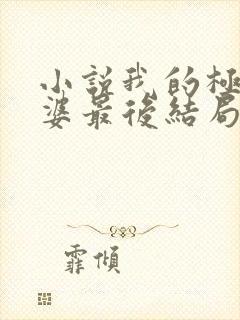 小説我的極
婆最後結局
霏傾